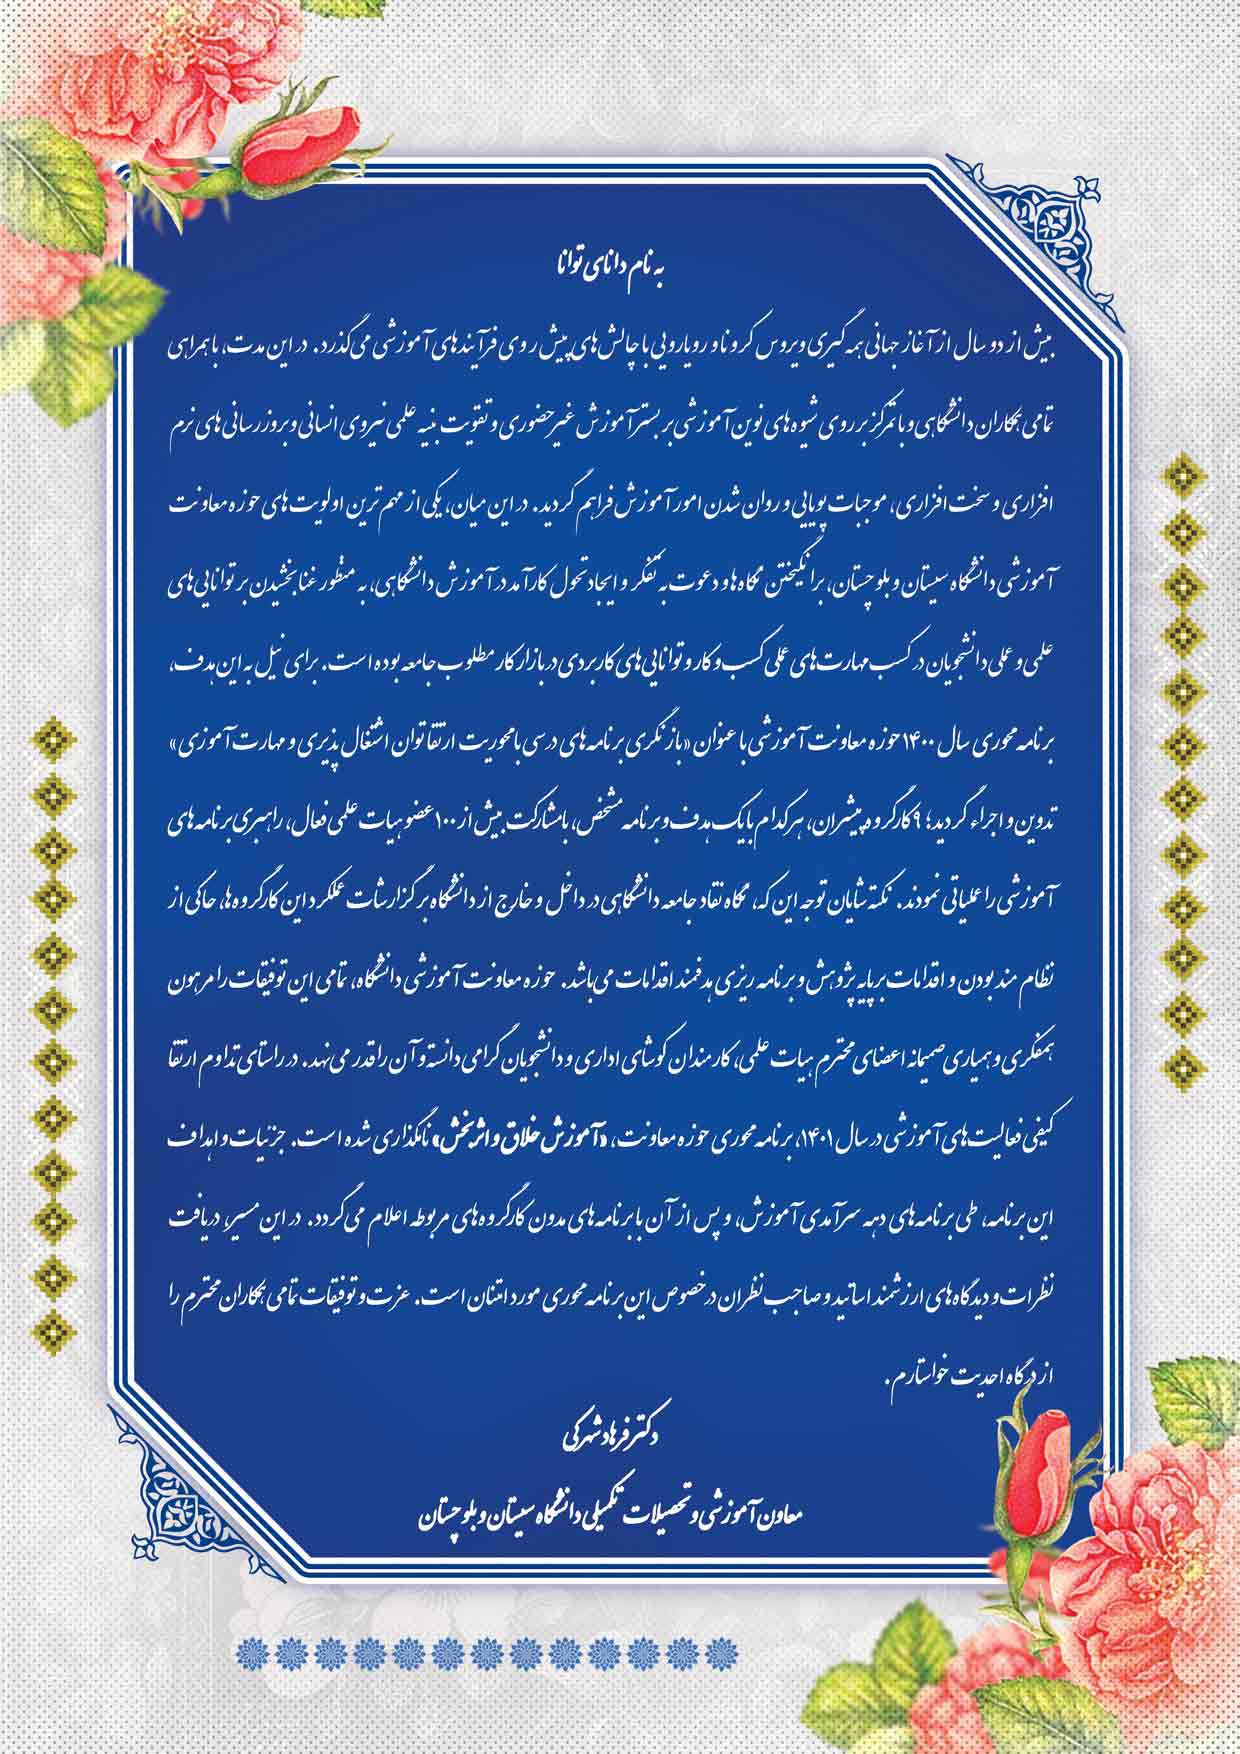 به نام دانای توانا
بیش از دو سال از آغاز جهانی همه گیری ویروس کرونا و رویارویی با چالش‌های پیش روی فرآیندهای آموزشی می‌گذرد. در این مدت، با همراهی
تمامی همکاران دانشگاهی و با تمرکز بر روی شیوه های نوین آموزشی بر بستر آموزش غیرحضوری و تقویت بنیه علمی نیروی انسانی و بروزرسانی های نرم
افزاری و سخت افزاری، موجبات پویایی و روان شدن امور آموزش فراهم گردید. در این میان، یکی از مهم ترین اولویت های حوزه معاونت
آموزشی دانشگاه سیستان و بلوچستان، برانگیختن نگاه ها و دعوت به تفکر و ایجاد تحول کارآمد در آموزش دانشگاهی، به منظور غنا بخشیدن بر توانایی های
علمی و عملی دانشجویان در کسب مهارت های عملی کسب و کار و توانایی های کاربردی در بازار کار مطلوب جامعه بوده است. برای نیل به این هدف،
برنامه محوری سال ۱۴۰۰ حوزه معاونت آموزشی با عنوان «بازنگری برنامه های درسی با محوریت ارتقا توان اشتغال پذیری و مهارت آموزی»
تدوین و اجراء گردید؛ ۹ کارگروه پیشران، هرکدام با یک هدف و برنامه مشخص، با مشارکت بیش از ۱۰۰ عضو هیات علمی فعال، راهبری برنامه های
آموزشی را عملیاتی نمودند. نکته شایان توجه این که، نگاه نقاد جامعه دانشگاهی در داخل و خارج از دانشگاه بر گزارشات عملکرد این کارگروه ها، حاکی از
نظام مند بودن و اقدامات بر پایه پژوهش و برنامه ریزی هدفمند اقدامات می‌باشد. حوزه معاونت آموزشی دانشگاه، تمامی این توفیقات را مرهون
همفکری و همیاری صمیمانه اعضای محترم هیات علمی، کارمندان کوشای اداری و دانشجویان گرامی دانسته و آن را قدر می‌نهد. در راستای تداوم ارتقا
کیفی فعالیت های آموزشی در سال ۱۴۰۱، برنامه محوری حوزه معاونت، «آموزش خلاق و اثربخش» نامگذاری شده است. جزئیات و اهداف
این برنامه، طی برنامه های دهه سرآمدی آموزش، و پس از آن با برنامه های مدون کارگروه های مربوطه اعلام می‌گردد. در این مسیر، دریافت
نظرات و دیدگاه های ارزشمند اساتید و صاحب نظران در خصوص این برنامه محوری مورد امتنان است. عزت و توفیقات تمامی همکاران محترم را
از درگاه احدیت خواستارم.
دکتر فرهاد شهرکی
معاون آموزشی و تحصیلات تکمیلی دانشگاه سیستان و بلوچستان